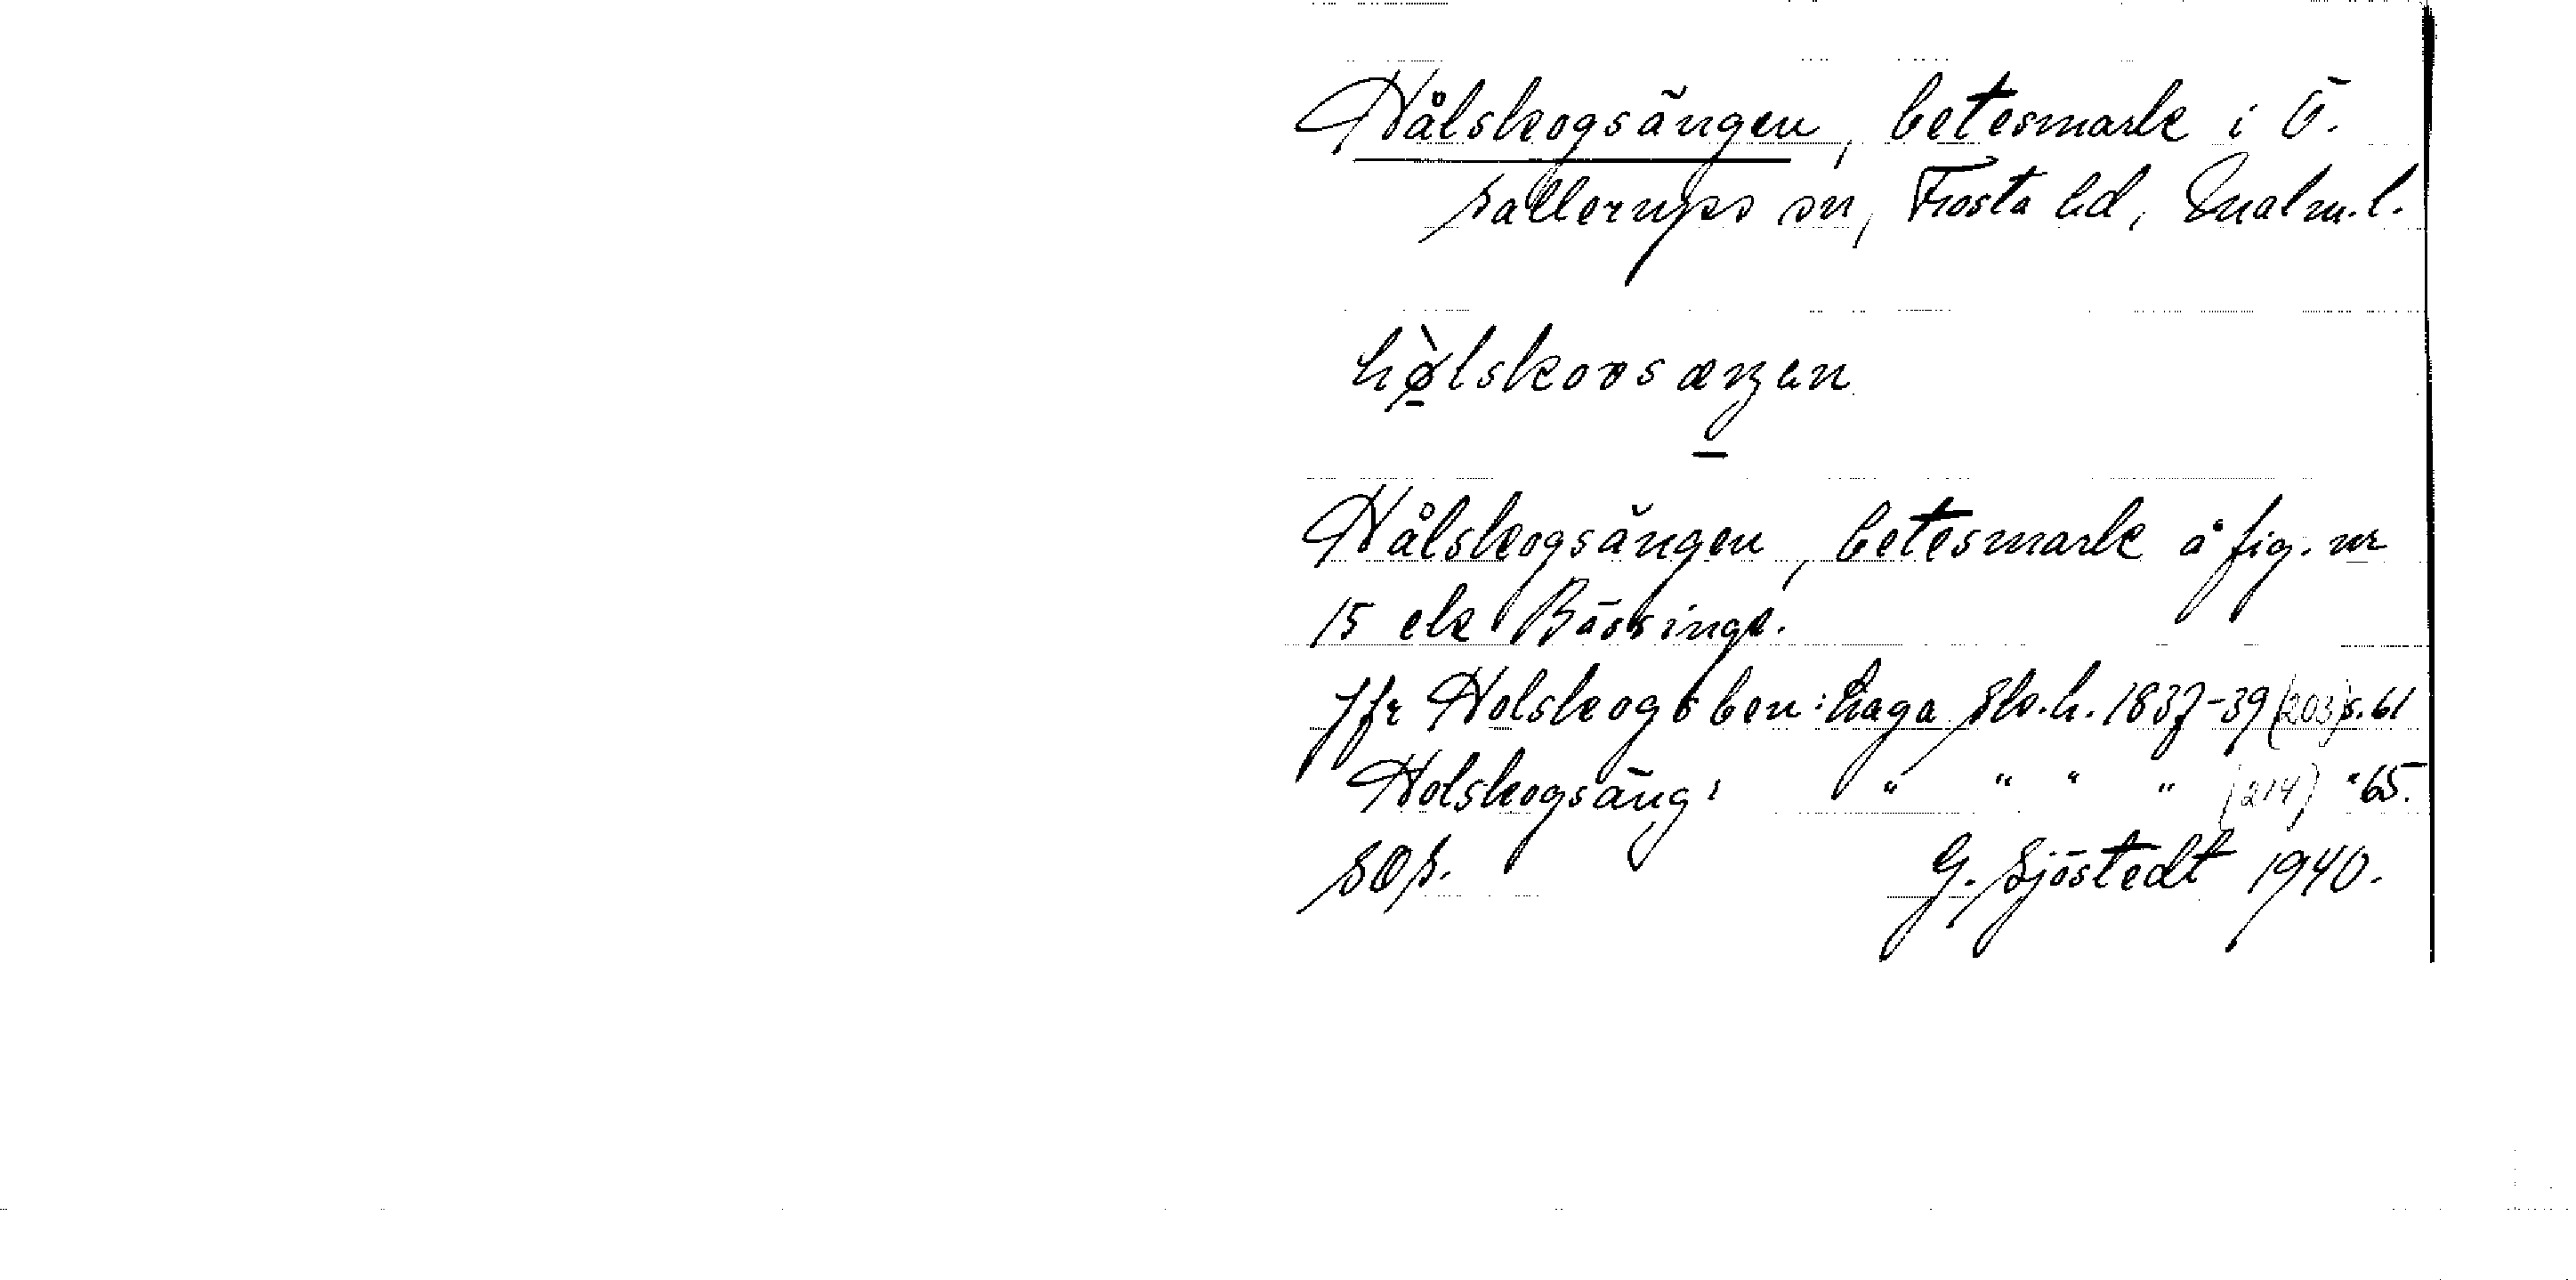 Hålskogsängen, betesmark i Ö.
Sallerups sn, Frosta hd, Malm.l.
Hålskogsängen, betesmark å fig. nr
15 ek Bäsinge.
Jfr Holskogsben: Laga Sk.h. 1837-39 (203) s. 61
Holskogsäng: " " " " (214) " 65.
SOS. G. Sjöstedt 1940.